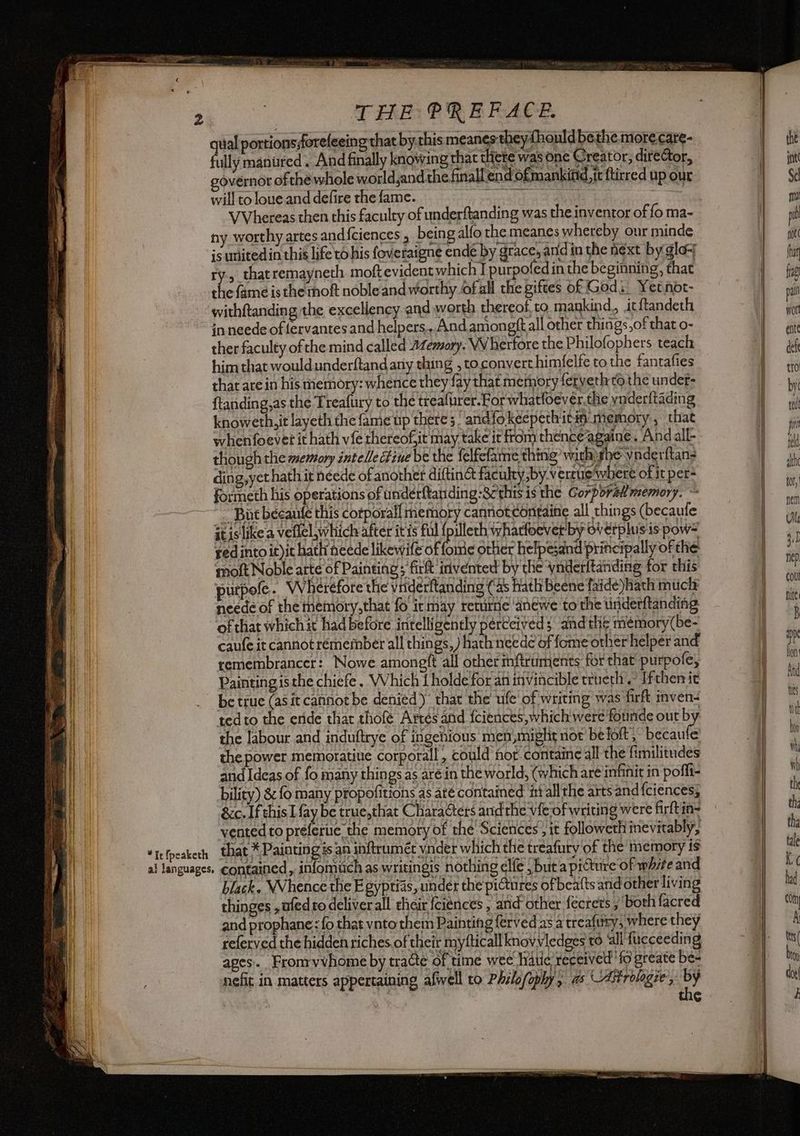 2 THE PREFACE.
qual portions, foreseeing that by this meanes they should be the more care-
fully manured. And finally knowing that there was one Creator, director,
governor of the whole world, and the finall end of mankind, it stirred up our
will to loue and desire the same.
VVhereas then this faculty of understanding was the inventor of so ma-
ny worthy artes and sciences, being also the meanes whereby our minde
is united in this life to his soveraigne ende by grace, and in the next by glo-
ry, that remayneth most evident which I purposed in the beginning, that
the same is the most noble and worthy of all the giftes of God. Yet not-
withstanding the excellency and worth thereof to mankind, it standeth
in neede of servantes and helpers. And amongst all other things, of that o-
ther faculty of the mind called Memory. VVherfore the Philosophers teach
him that would understand any thing, to convert himselfe to the fantasies
that are in his memory: whence they say that memory serveth to the under-
standing, as the Treasury to the treasurer. For whatsoever the vnderstāding
knoweth, it layeth the same up there; and so keepeth it in memory, that
whensoever it hath vse thereof, it may take it from thence againe. And all-
though the memory intellectiue be the selfesame thing with the vnderstan-
ding, yet hath it neede of another distinct faculty, by vertue where of it per-
formeth his operations of understanding: & this is the Corporall memory.
But because this corporall memory cannot containe all things (because
it is like a vessel, which after it is ful spilleth whatsoever by overplus is pow-
red into it) it hath neede likewise of some other helpes, and principally of the
most Noble arte of Painting; first invented by the vnderstanding for this
purpose. VVherefore the vnderstanding (as hath beene saide) hath much
neede of the memory, that so it may returne anewe to the understanding
of that which it had before intelligently perceived; and the memory (be-
cause it cannot remember all things,) hath neede of some other helper and
remembrancer: Nowe amongst all other instruments for that purpose,
Painting is the chiefe. VVhich I holde for an invincible trueth. If then it
be true (as it cannot be denied) that the use of writing was first inven-
ted to the ende that those Artes and sciences, which were founde out by
the labour and industrye of ingenious men, might not be lost, because
the power memoratiue corporall, could not containe all the similitudes
and Ideas of so many things as are in the world, (which are infinit in possi-
bility) & so many propositions as are contained in all the arts and sciences,
&c. If this I say be true, that Characters and the vse of writing were first in-
vented to preserue the memory of the Sciences, it followeth inevitably,
*It speaketh that * Painting is an instrumēt vnder which the treasury of the memory is
al languages. contained, insomuch as writing is nothing else, but a picture of white and
black. VVhence the Egyptiās, under the pictures of beasts and other living
thinges, used to deliver all their sciences, and other secrets, both sacred
and prophane: so that vnto them Painting served as a treasury, where they
reserved the hidden riches of their mysticall knovvledges to all succeeding
ages. From vvhome by tracte of time wee haue received so greate be-
nefit in matters appertaining aswell to Philosophy, as Astrologie, by
the